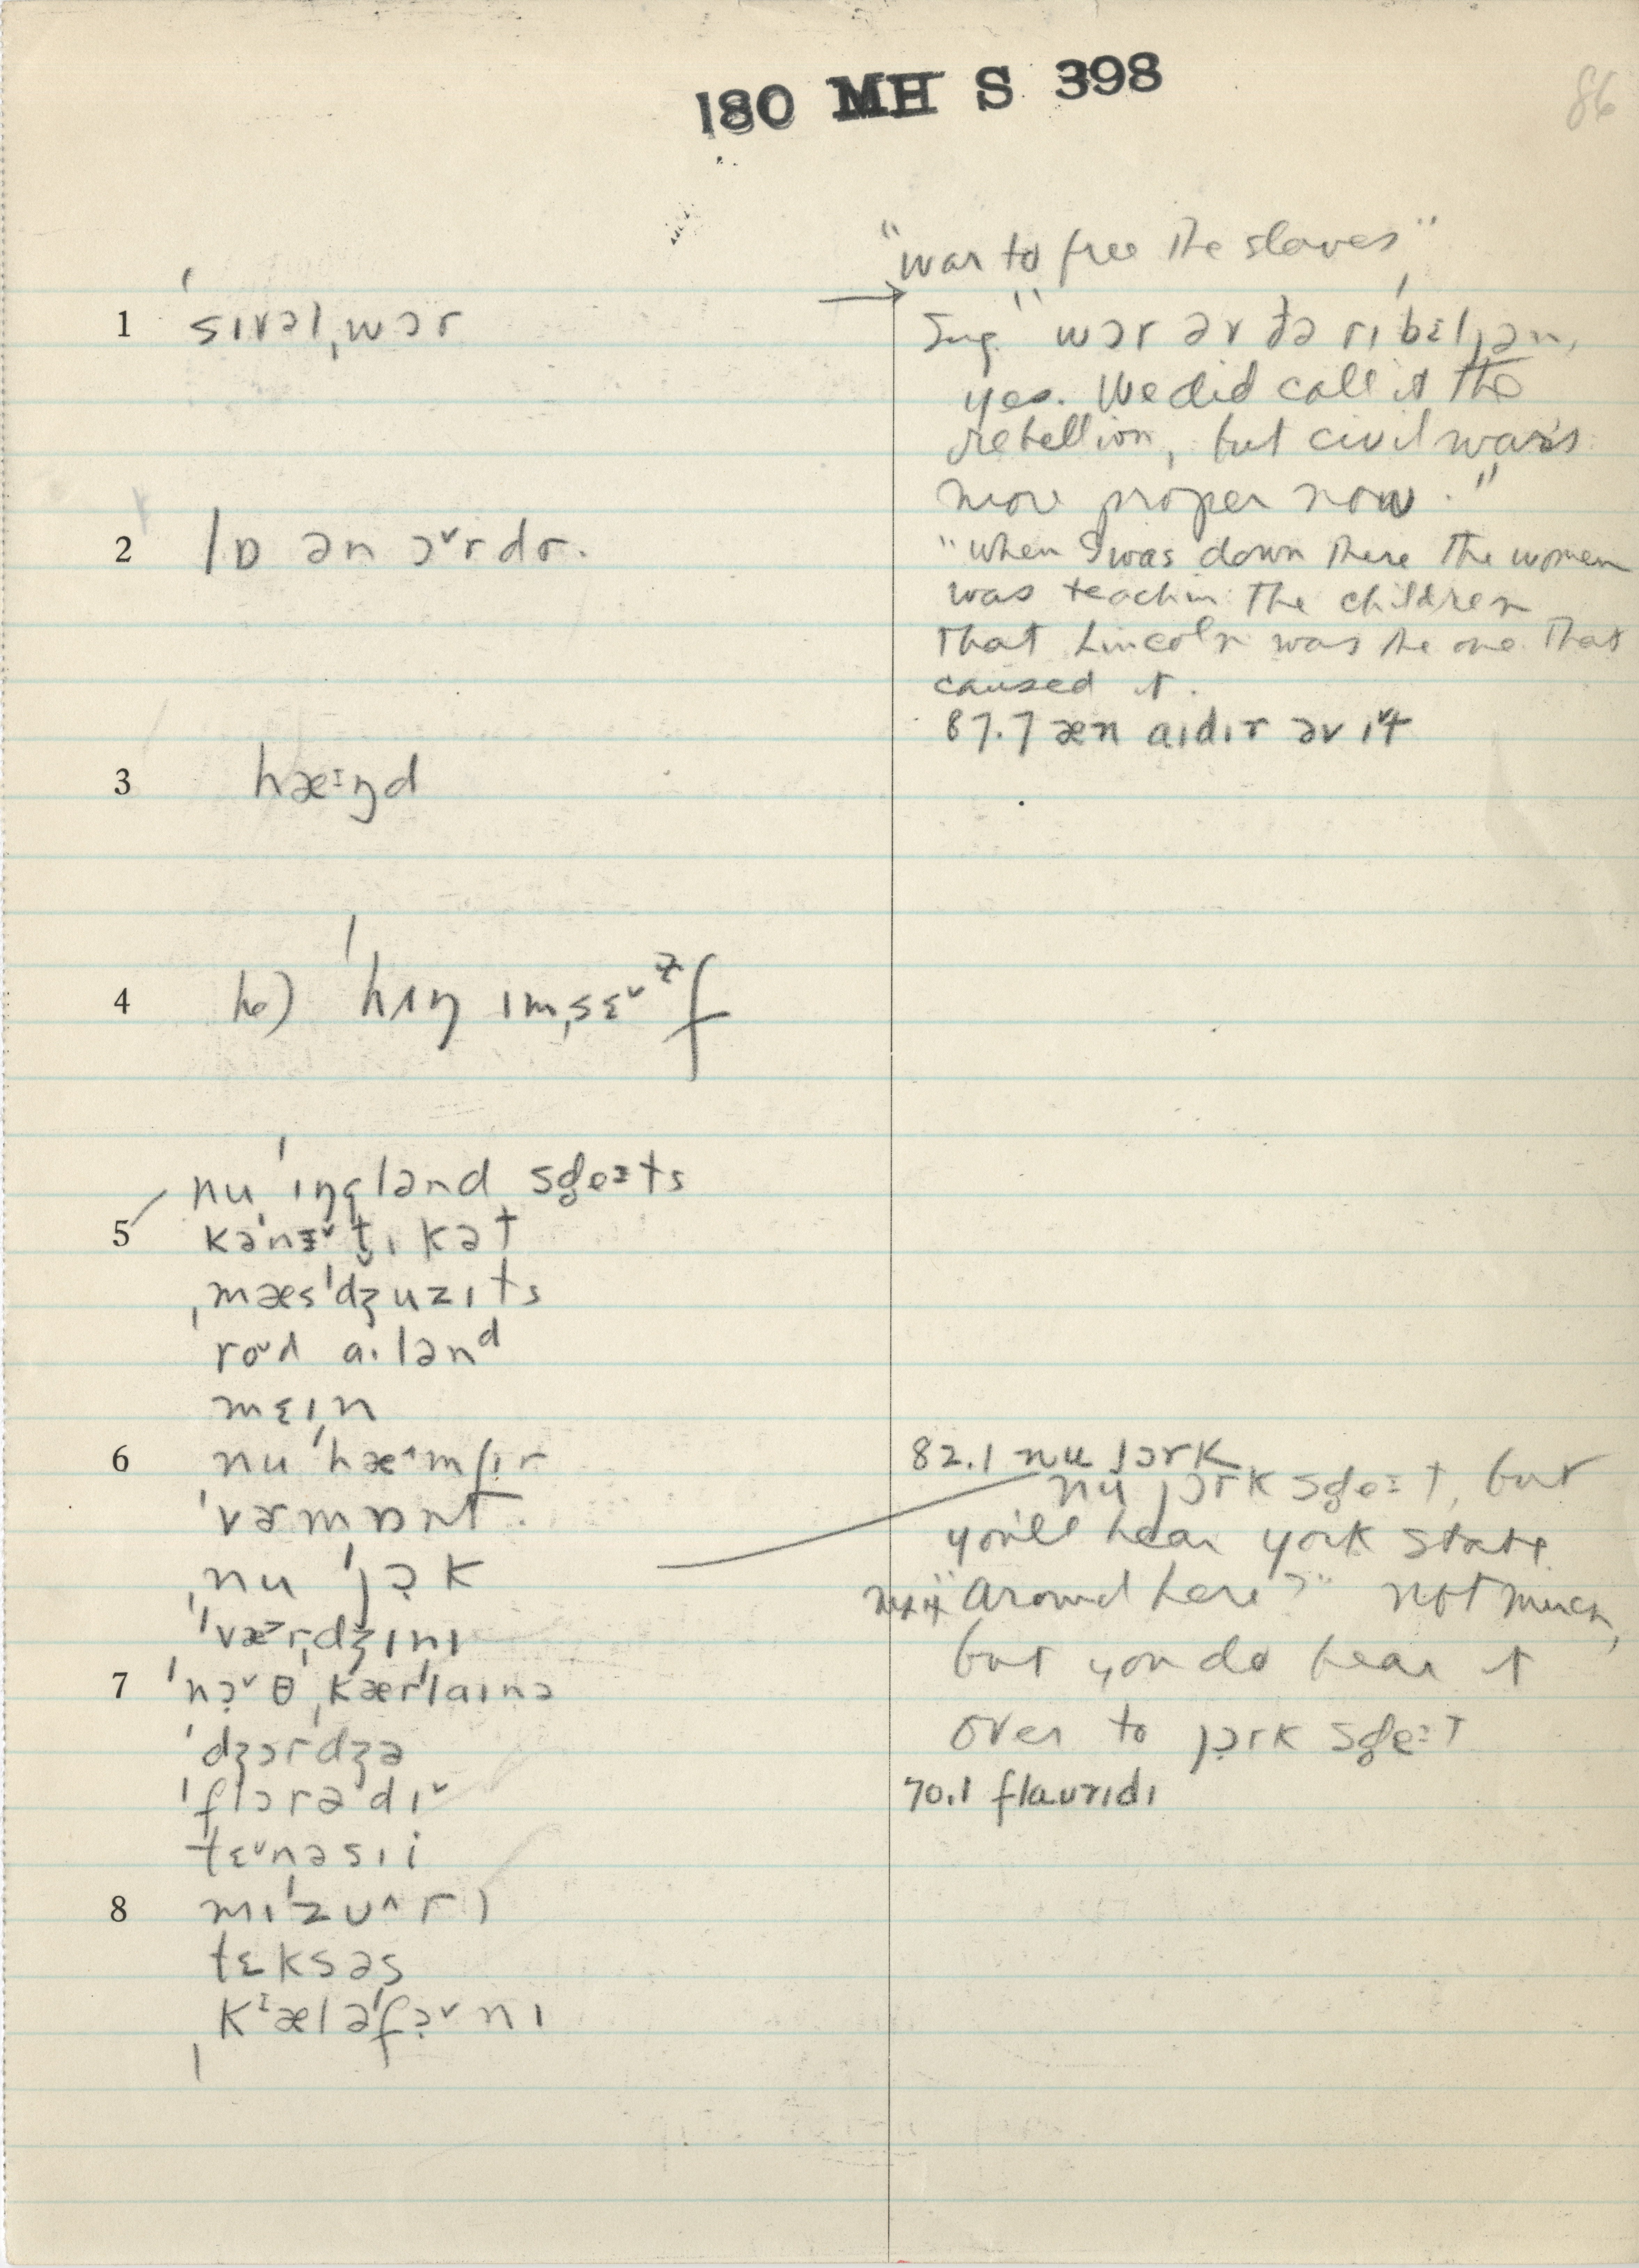 180 MH S 398
86
1 ˈsɪvəlˌwɔr
2 lɒ ən ɔ˅rdɚ.
3 hæᶦŋd
4 he) ˈhʌŋ ɪmˌsɛ˅ɫf
nuˈɪŋglənd sd̥eɪts
5 kəˈnɛ˅t̬ɪkət
ˌmæsˈdʒuzɪts
roʊd aɪlənᵈ
mɛɪn
6 nuˈhæ˄mʃɪr
ˈvɚmɒnt.
ˌnuˈjɔk
ˈvɚdʒɪnɪ
7 ˈnɔ˅θˌkærˈlaɪnə
ˈdʒɔrdʒə
ˈflɔrədɪ˅
tɛ˅nəsɪi
8 mɪˈzʊ˄rɪ
tɛksəs
ˌkᶦæləˈfɔ˅nɪ
"war to free the slaves"
Sug. "wɔr əv ðə rɪˈbɛljən,
yes. We did call it the
rebellion, but civil war's
more proper now."
"When I was down there the women
was teachin the children
that Lincoln was the one that
caused it.
87.7 æn aɪdɪr əv ɪ˅t
82.1 nu jɔrk
nu jɔrk sd̥eɪt, but
you'll hear york state
"around here?" not much,
but you do hear it
over to jɔrk sd̥eɪt
70.1 flaʊrɪdɪ